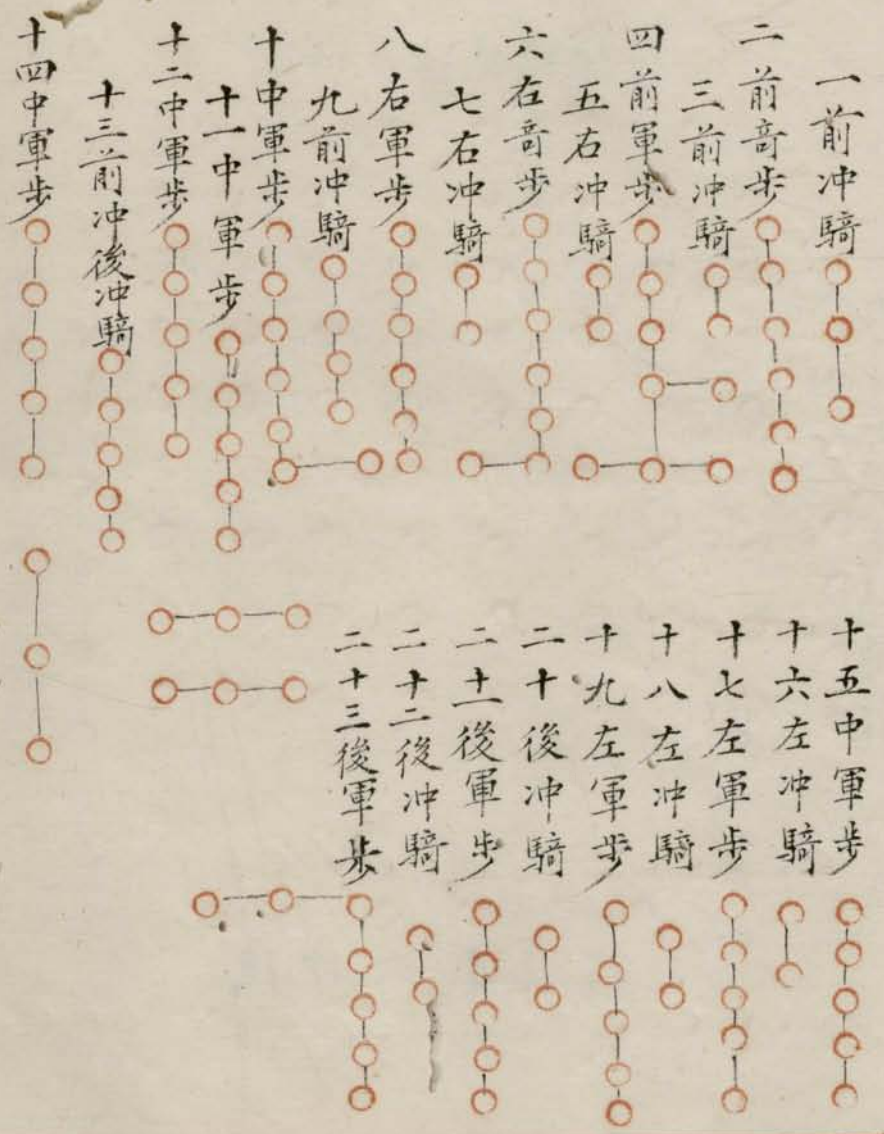 一前冲騎
二前竒步
三前冲騎
四前軍步
五右冲騎
六右竒步
七右冲騎
八右軍步
九前冲騎
十中軍步
十一中軍步
十二中軍步
十三前冲後冲騎
十四中軍步
十五中軍步
十六左冲騎
十七左軍步
十八左冲騎
十九左軍步
二十後冲騎
二十一後軍步
二十二後冲騎
二十三後軍步